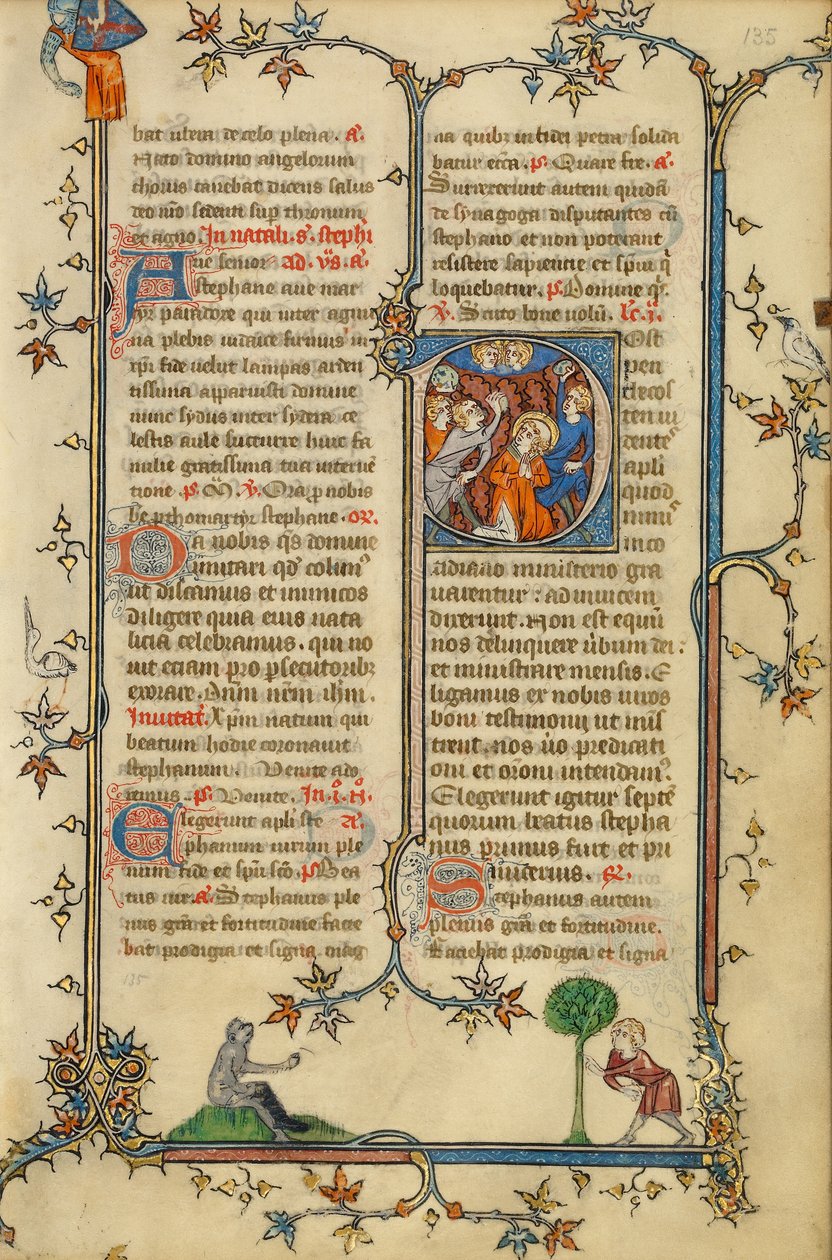 135
bat ubera de celo plena. a.
Nato domino angelorum
chorus canebat dicens salus
deo nro sedenti sup thronum
et agno. In natali. s. stephi
Aue senior ad. vs. a.
stephane aue mar
tyr paradoxe qui inter agmi
na plebis iudaice firmus in
xpi fide uelut lampas arden
tissima apparuisti domine
nunc sydus inter sydera ce
lestis aule succurre huic fa
milie gratissima tua interue
tione. p. v. Ora p nobis
be pthomartyr stephane. or.
Da nobis qs domine
imitari qd colim
ut discamus et inimicos
diligere quia eius nata
licia celebramus. qui no
uit eciam pro psecutorib
exorare. Dnm nrm ihm.
Inuitat. Xpm natum qui
beatum hodie coronauit
stephanum. Venite ado
remus. p. Venite. In. i. N.
Elegerunt apli ste a.
phanum uirum ple
num fide et spu sco. p Bea
tus uir. a. Stephanus ple
nus gra et fortitudine facie
bat prodigia et signa mag
135
na quib in fidei petra solida
batur ecca. p. Quare fre. a.
Surrexerunt autem quida
de synagoga disputantes cu
stephano et non poterant
resistere sapiencie et spui q
loquebatur. p. Domine qs.
v. Scuto bone uolu. lc. i.
Ost
pen
thecos
ten ui
dentes
apli
quod
nimi
in co
tidiano ministerio gra
uarentur: ad inuicem
dixerunt. Non est equu
nos delinquere ubum dei:
et ministrare mensis. E
ligamus ex nobis uiros
boni testimonij ut mis
trent. nos uo predicati
oni et oroni intendam.
Elegerunt igitur septe
quorum beatus stepha
nus primus fuit et pri
micerius. R.
Stephanus autem
plenus gra et fortitudine.
Faciebat prodigia et signa